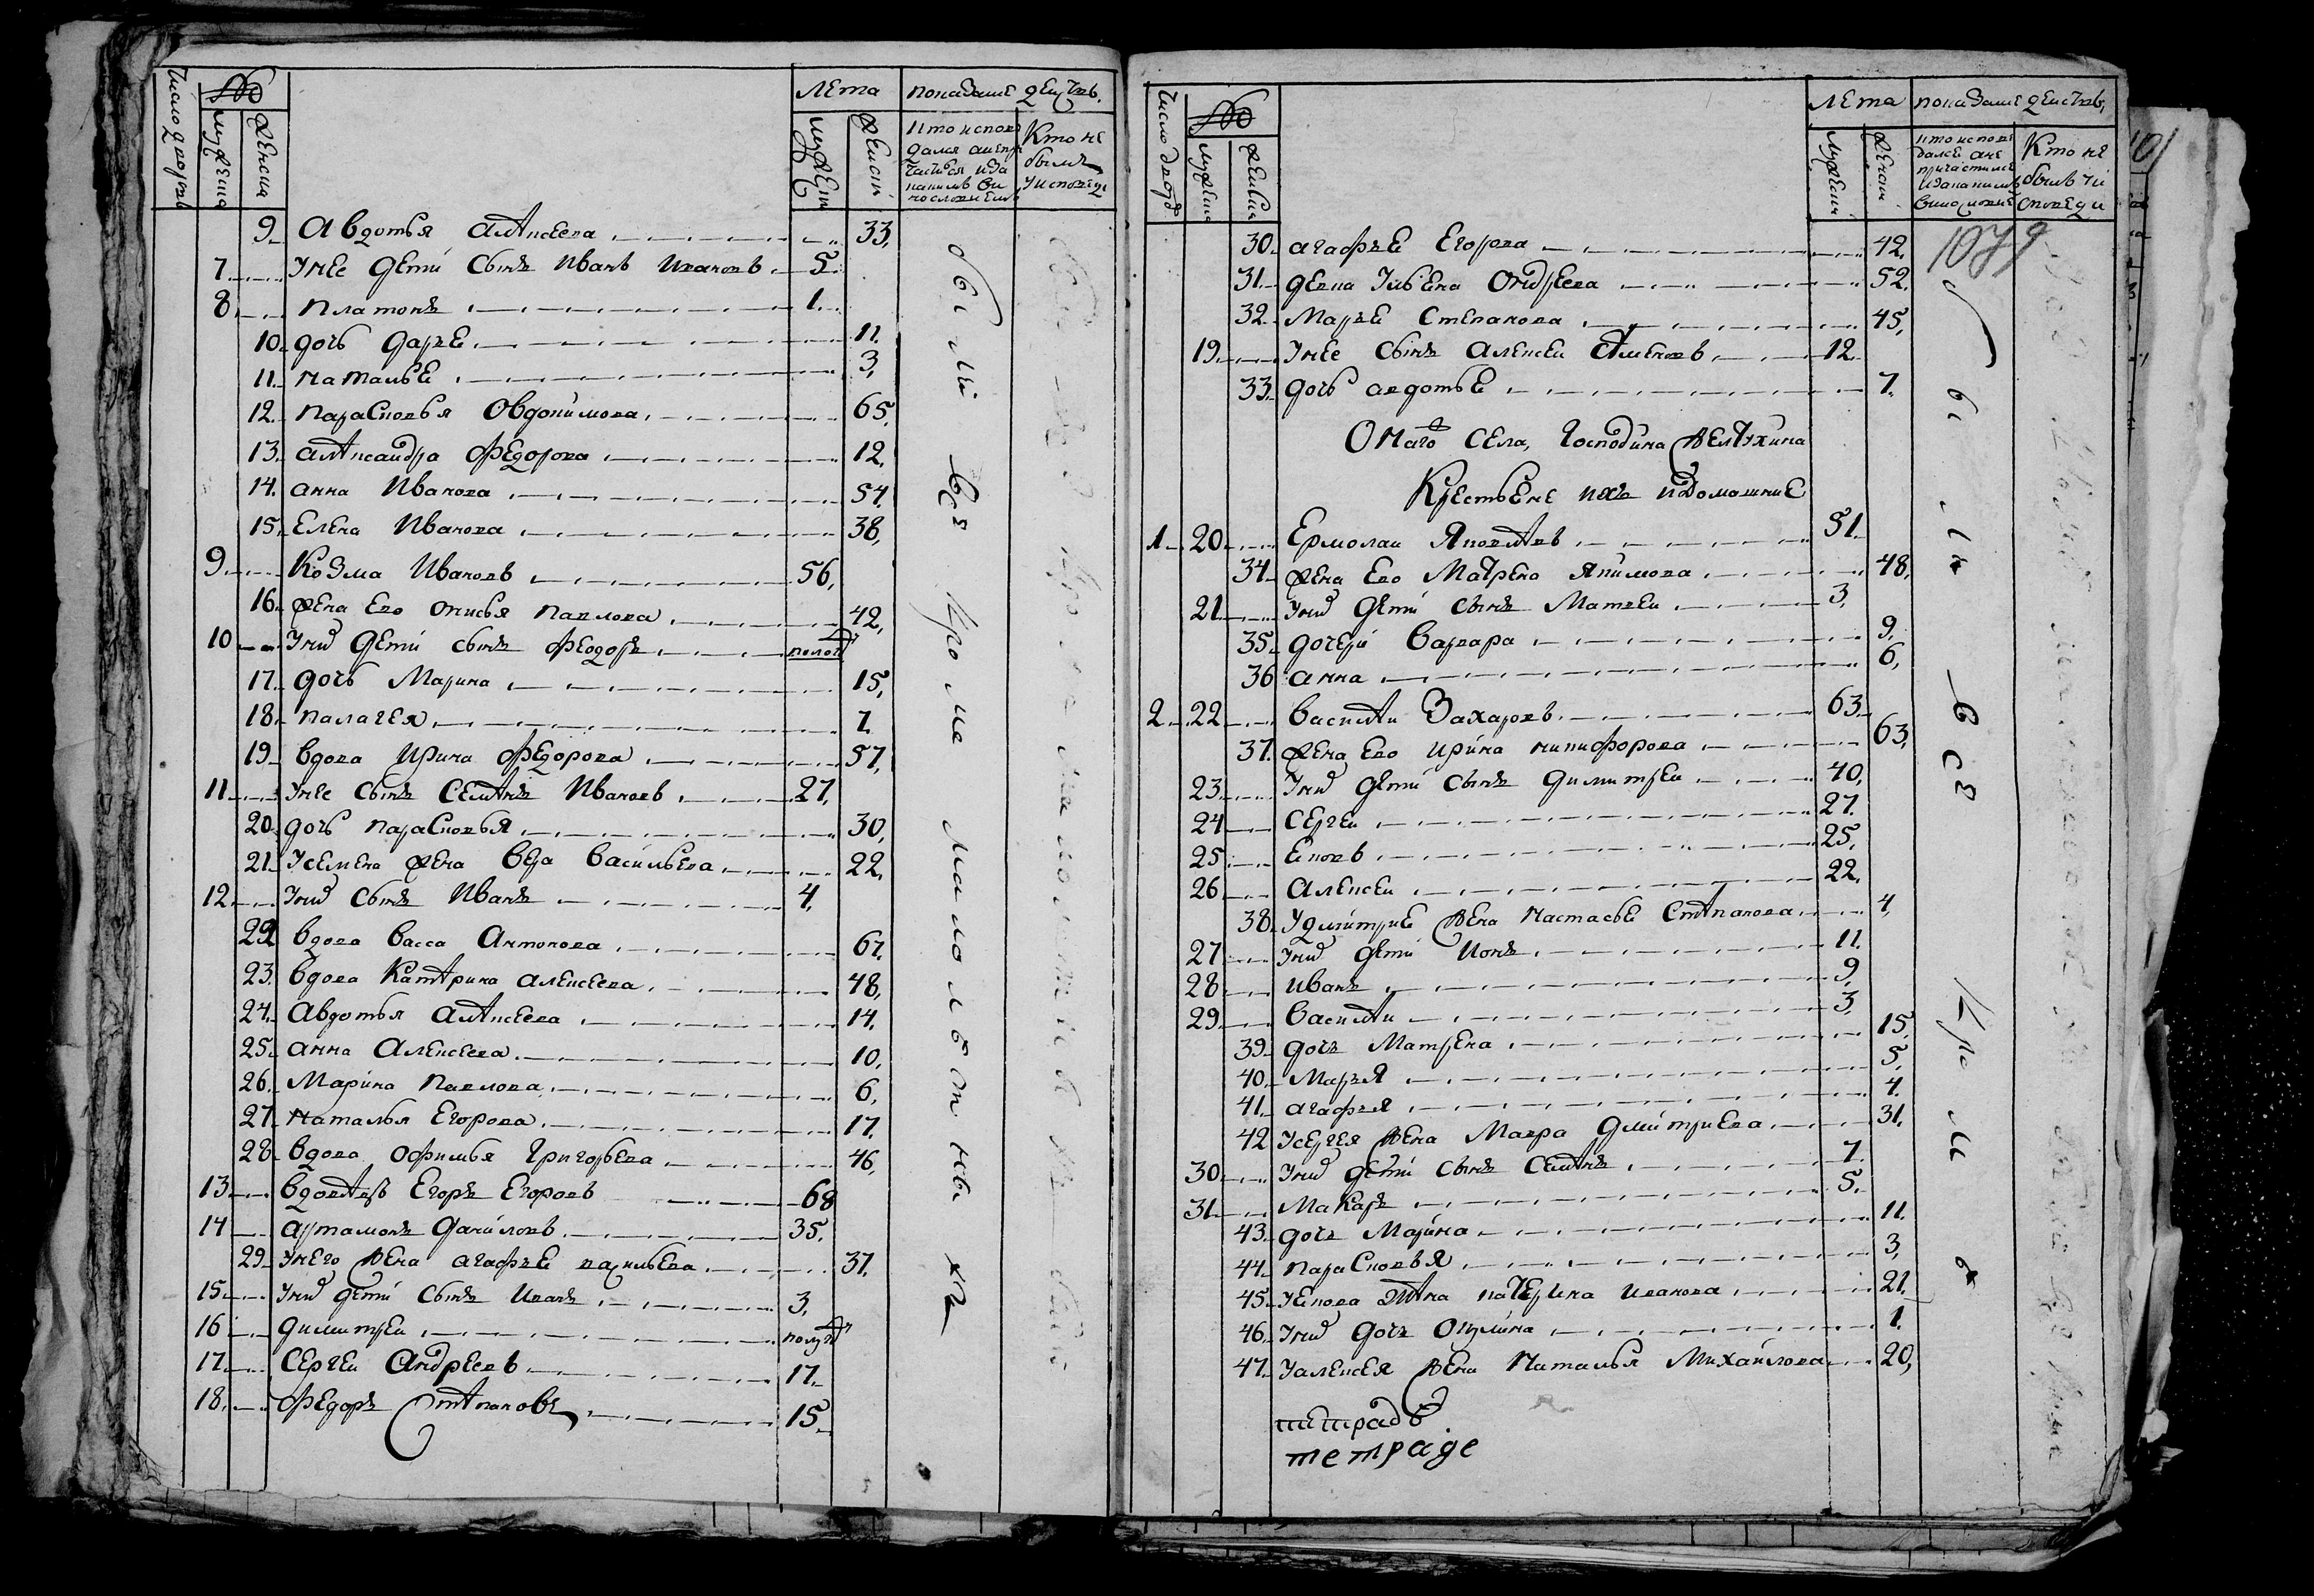 Число дворовъ
№
мужеска
женска
Лета
показание действ.
мужеск
женск
Кто не былъ
9 Авдотья Алексеева 33
7 Унее дети сынъ Иванъ Ивановъ 5
8 Платонъ 1
10 дочь Дарье 11
11 Наталье 3
12 Парасковья Овдокимова 65
13 Александра Федорова 12
14 Анна Иванова 54
15 Елена Иванова 38
9 Козма Ивановъ 56
16 жена Ево 42
10 Унихъ дети сынъ Феодоръ полог
17 дочь Марина 15
18 Палагея 7
19 вдова Ирина Федорова 57
11 Унее сынъ Семенъ Ивановъ 27
20 дочь Парасковья 30
21 Усемена жена Вера Васильева 22
12 Унихъ сынъ Иванъ 4
22 вдова Васса Антонова 67
23 вдова Катерина Алексеева 48
24 Авдотья Алексеева 14
25 Анна Алексеева 10
26 Марина Павлова 6
27 Наталья Егорова 17
28 вдова Офимья Григорьева 46
13 вдовецъ Егоръ Егоровъ 68
14 Артамонъ Даниловъ 35
29 Унего жена Агафье Васильева 37
15 Унихъ дети сынъ Иванъ 3
16 Димитреи полуг
17 Сергеи Андреевъ 17
18 Федоръ Степановъ 15
были все кроме малолетныхъ
Число дворовъ
№
мужеска
женска
Лета
показание действ.
мужеска
женск
Кто не былъ
1079
30 Агафье Егорова 42
31 девка Ульена Ондреева 52
32 Марье Степанова 45
19 Унее сынъ Алексеи 12
33 дочь Авдотье 7
Онаго села, Господина Желтухина
Крестьене ихъ и домашние
1 20 Ермолаи Яковлевъ 51
34 жена Ево Матрена Якимова 48
21 Унихъ дети сынъ Матвеи 3
35 дочери Варвара 9
36 Анна 6
2 22 Василеи Захаровъ 63
37 жена Ево Ирина Никифорова 63
23 Унихъ дети сынъ Димитреи 40
24 Сергеи 27
25 Ековъ 25
26 Алексеи 22
38 Удмитрие жена Настасье Степанова 4
27 Унихъ дети Ионъ 11
28 Иванъ 9
29 Василеи 3
39 дочь Матрена 15
40 Марья 5
41 Агафья 4
42 Усергея жена Мавра Дмитриева 31
30 Унихъ дети сынъ Семенъ 7
31 Макаръ 5
43 дочь Марина 11
44 Парасковья 3
45 Уекова жена Катерина Иванова 21
46 Унихъ дочь Окулина 1
47 Уалексея жена Наталья Михайлова 20
были все кроме
тетрадь
тетраде